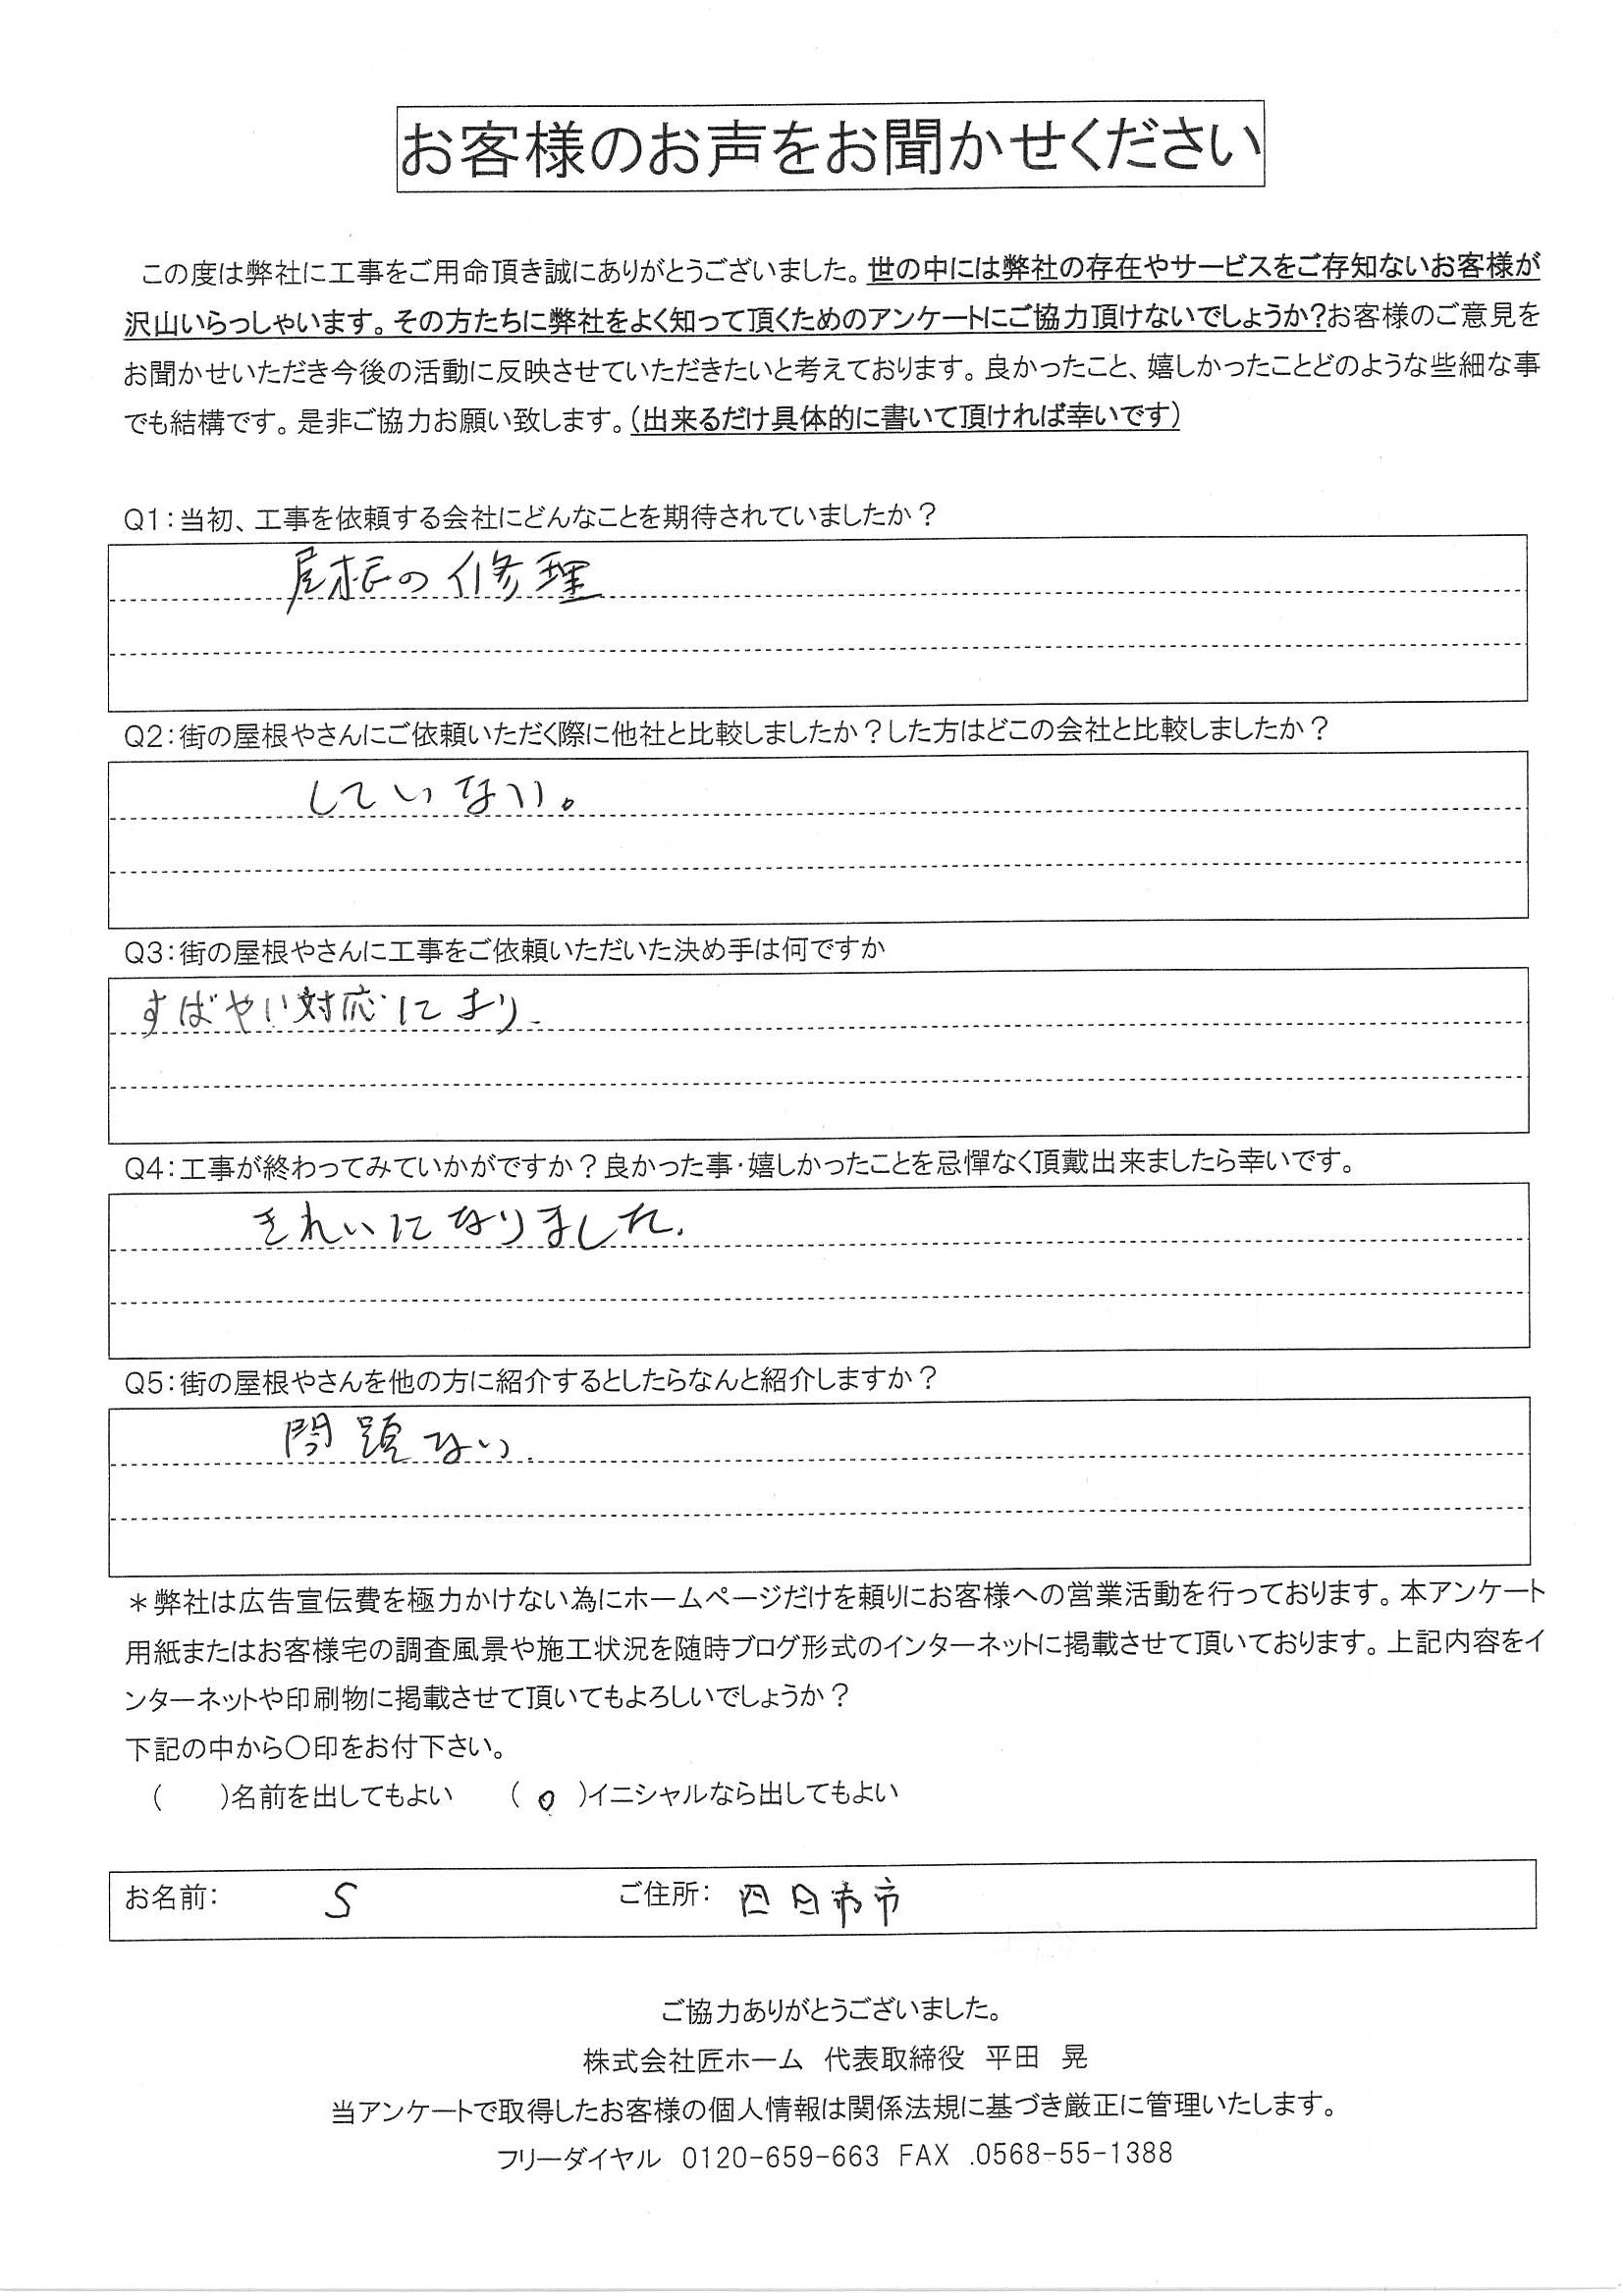 お客様のお声をお聞かせください
この度は弊社に工事をご用命頂き誠にありがとうございました。世の中には弊社の存在やサービスをご存知ないお客様が
沢山いらっしゃいます。その方たちに弊社をよく知って頂くためのアンケートにご協力頂けないでしょうか?お客様のご意見を
お聞かせいただき今後の活動に反映させていただきたいと考えております。良かったこと、嬉しかったことどのような些細な事
でも結構です。是非ご協力お願い致します。(出来るだけ具体的に書いて頂ければ幸いです)
Q1:当初、工事を依頼する会社にどんなことを期待されていましたか?
屋根の修理
Q2:街の屋根やさんにご依頼いただく際に他社と比較しましたか?した方はどこの会社と比較しましたか?
していない。
Q3:街の屋根やさんに工事をご依頼いただいた決め手は何ですか
すばやい対応により.
Q4:工事が終わってみていかがですか?良かった事・嬉しかったことを忌憚なく頂戴出来ましたら幸いです。
きれいになりました.
Q5:街の屋根やさんを他の方に紹介するとしたらなんと紹介しますか?
問題ない.
*弊社は広告宣伝費を極力かけない為にホームページだけを頼りにお客様への営業活動を行っております。本アンケート
用紙またはお客様宅の調査風景や施工状況を随時ブログ形式のインターネットに掲載させて頂いております。上記内容をイ
ンターネットや印刷物に掲載させて頂いてもよろしいでしょうか?
下記の中から〇印をお付下さい。
(　　)名前を出してもよい　　(　o　)イニシャルなら出してもよい
お名前:　S　ご住所:　四日市市
ご協力ありがとうございました。
株式会社匠ホーム　代表取締役　平田　晃
当アンケートで取得したお客様の個人情報は関係法規に基づき厳正に管理いたします。
フリーダイヤル　0120-659-663 FAX .0568-55-1388